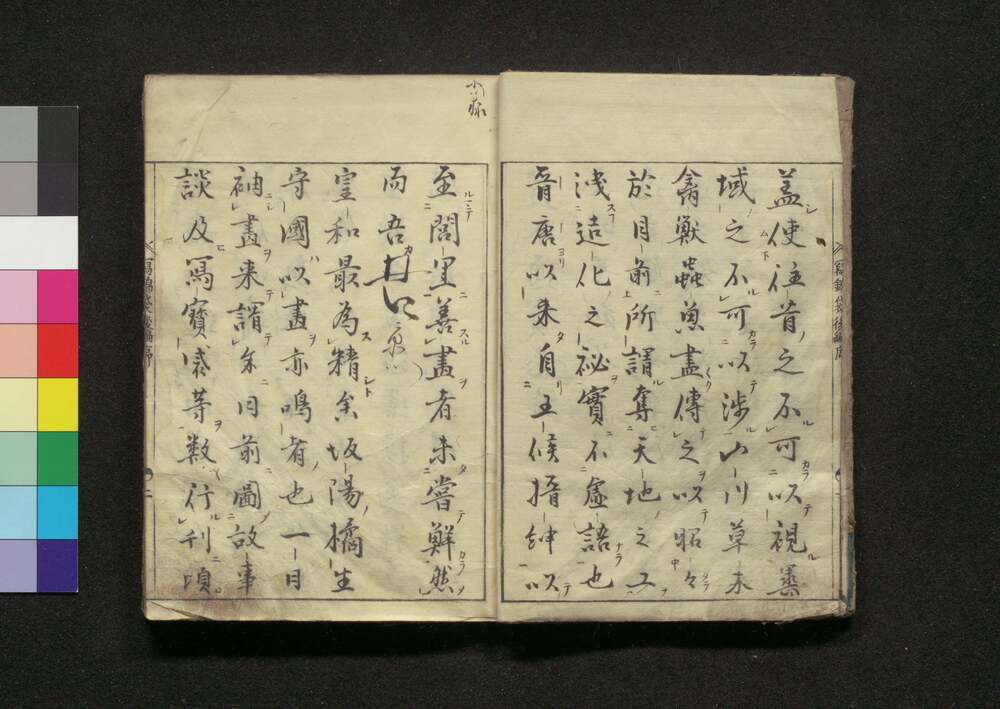 蓋使往昔之不可以視蕃
域之不可以涉山川草木
禽獣蟲魚盡傳之以昭々
於目前所謂奪天地之工
洩造化之祕實不虛語也
晋唐以来自王侯搢紳以
至閭里善畫者未嘗鮮然
而吾
皇和最為精矣坂陽橘生
守國以畫亦鳴者也一日
袖畫来謂余曰前圖故事
談及寫寳袋等数行刊頃